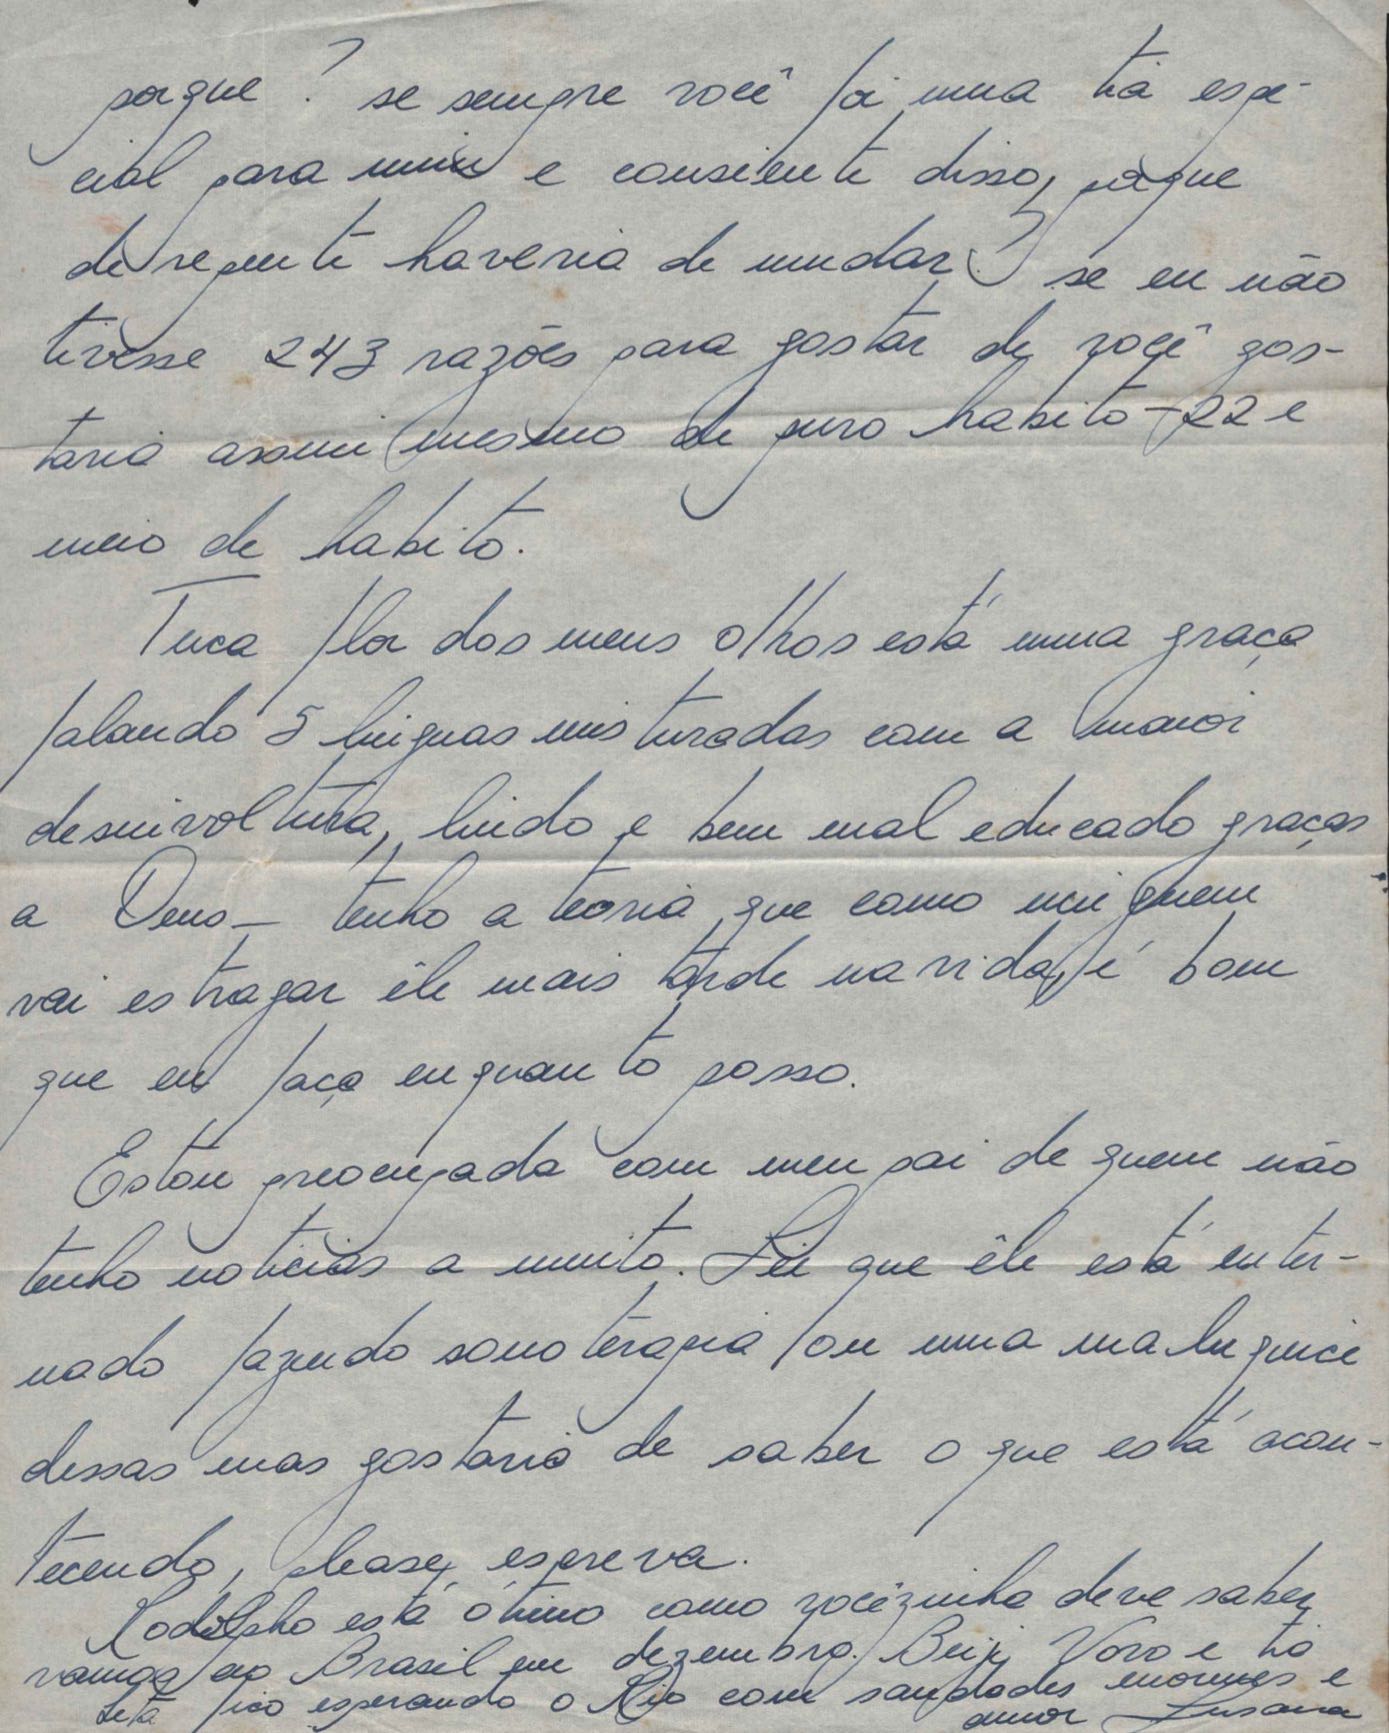 porque? se sempre você foi uma tia espe-
cial para mim e consciente disso, porque
de repente haveria de mudar? se eu não
tivesse 243 razões para gostar de você gos-
taria assim mesmo de puro habito - 22 e
meio de habito.
Tuca flor dos meus olhos está uma graça
falando 5 linguas misturadas com a maior
desenvoltura, lindo e bem mal educado graças
a Deus - tenho a teoria que como ninguem
vai estragar êle mais tarde na vida, é bom
que eu faça enquanto posso.
Estou preocupada com meu pai de quem não
tenho noticias a muito. Sei que êle está inter-
nado fazendo sonoterapia ou uma maluquice
dessas mas gostaria de saber o que está acon-
tecendo, please, escreva.
Rodolpho está ótimo como vocêzinha deve saber
vamos ao Brasil em dezembro. Beije Vovo e tia
Leta fico esperando o Rio com saudades enormes e
amor Susana